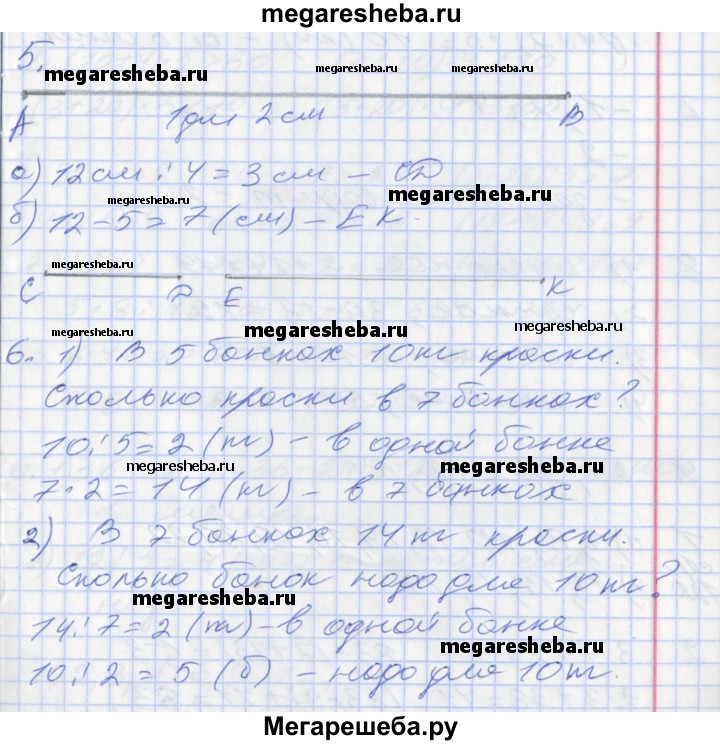 megaresheba.ru
5.
megaresheba.ru megaresheba.ru megaresheba.ru
А 1дм 2см В
а) 12см : 4 = 3см – СD
megaresheba.ru megaresheba.ru
б) 12 – 5 = 7 (см) – ЕК.
megaresheba.ru
С D Е К
megaresheba.ru megaresheba.ru megaresheba.ru
6. 1) В 5 банках 10кг краски.
Сколько краски в 7 банках?
10 : 5 = 2 (кг) – в одной банке
megaresheba.ru megaresheba.ru
7 · 2 = 14 (кг) – в 7 банках
2) В 7 банках 14кг краски.
Сколько банок надо для 10кг?
megaresheba.ru
14 : 7 = 2 (кг) – в одной банке
megaresheba.ru
10 : 2 = 5 (б) – надо для 10кг.
Мегарешеба.ру